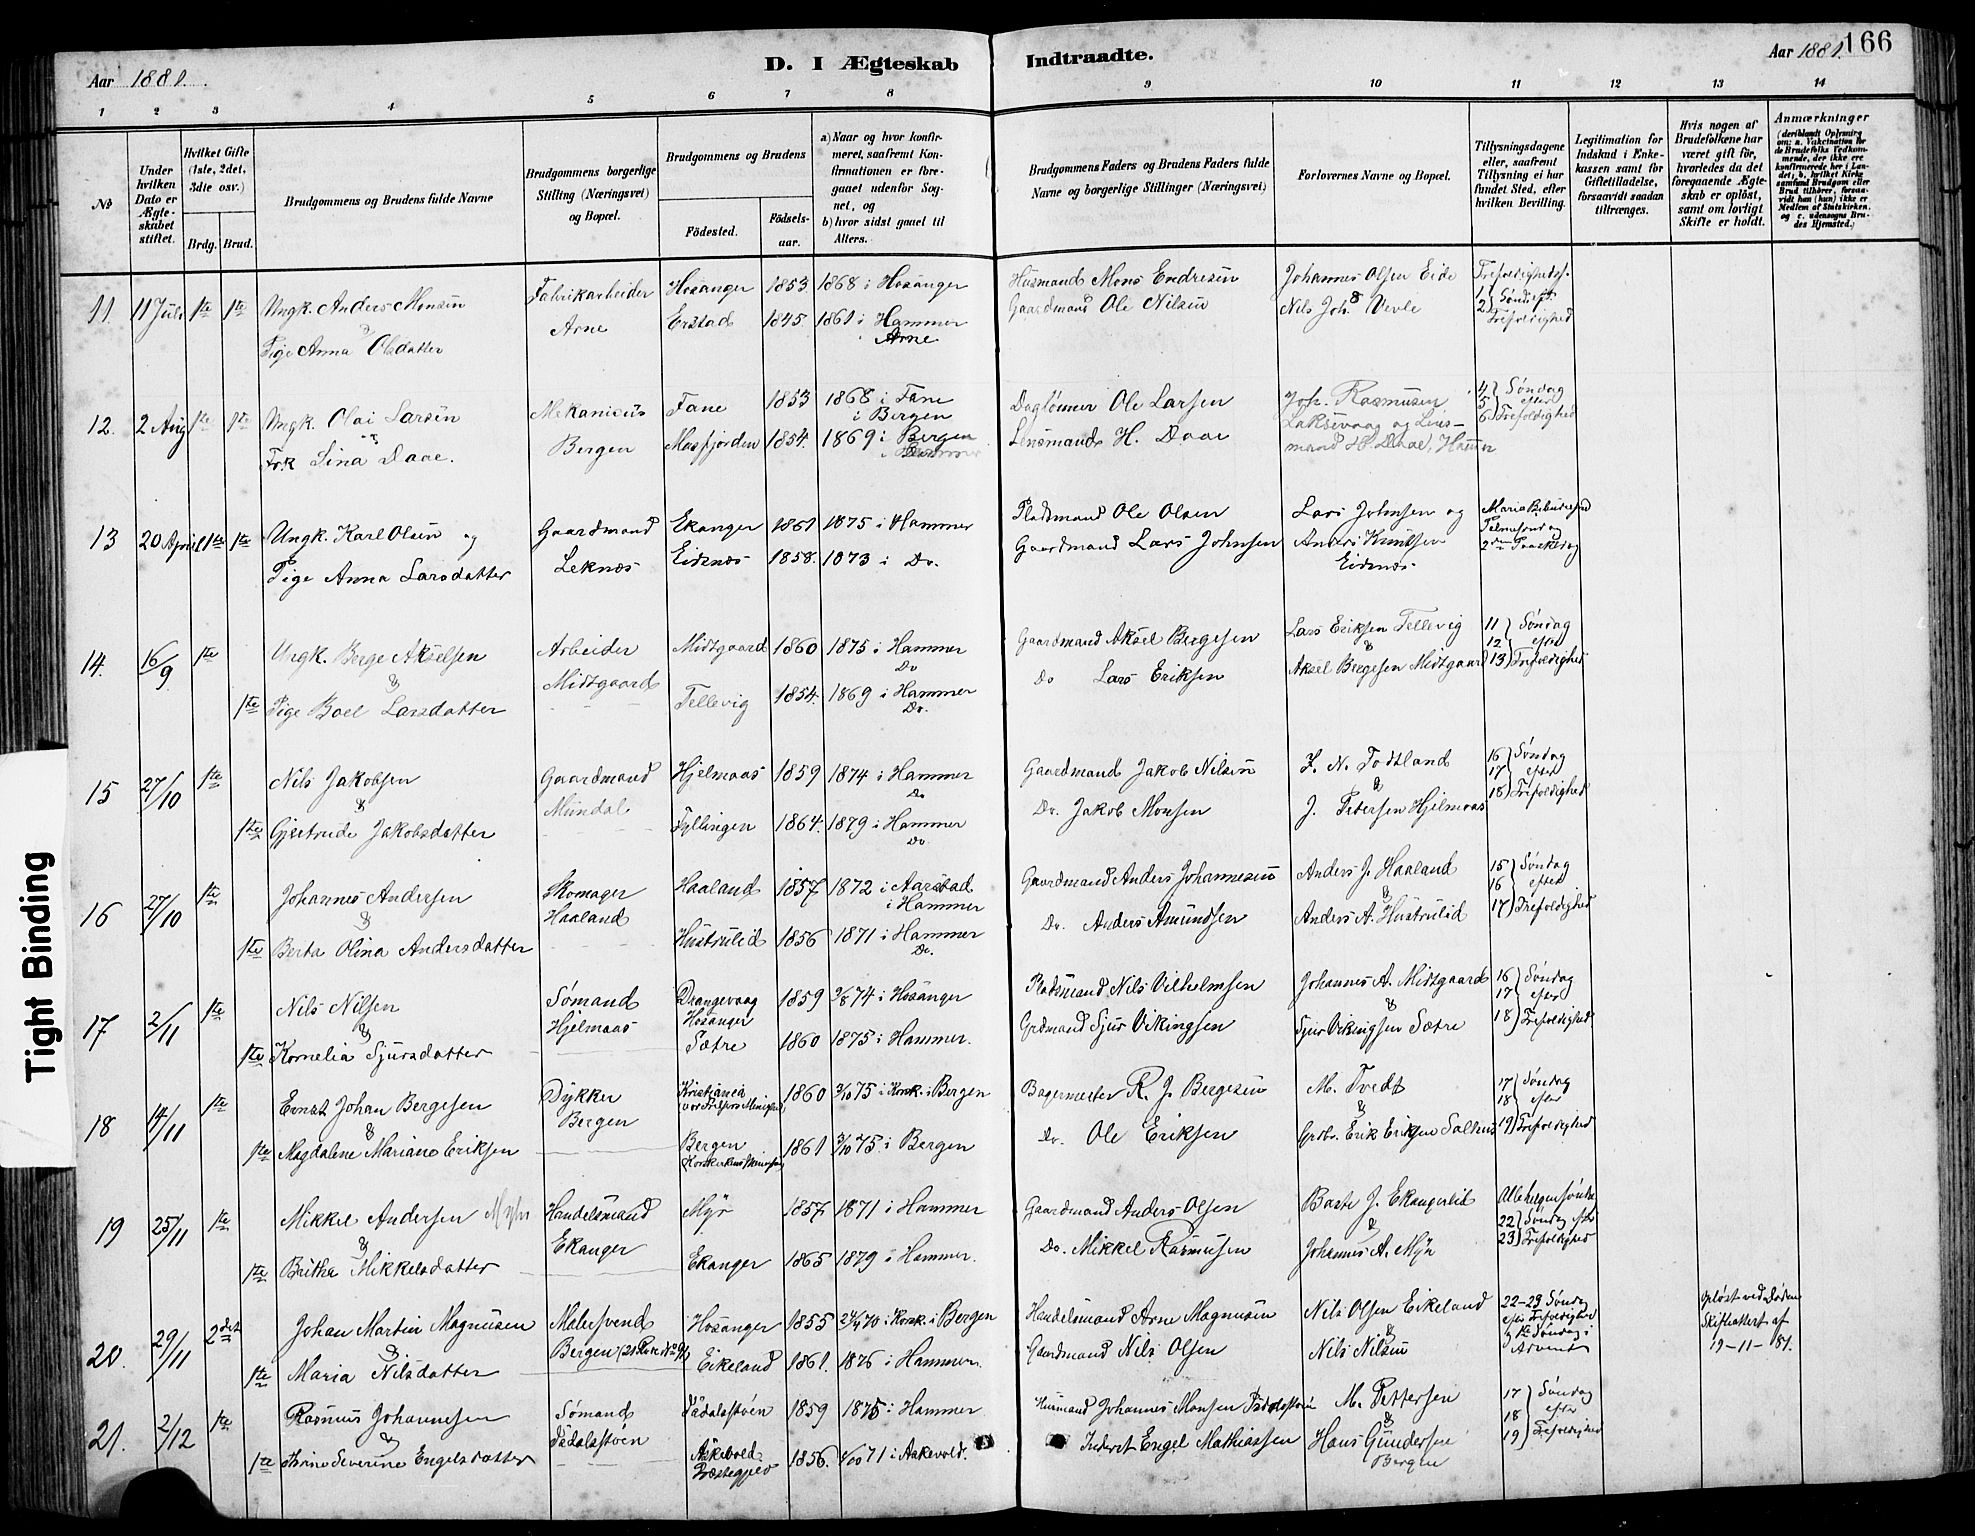 Aar 1881.
D. I Ægteskab Indtraadte.
Aar 1881.
166
1 2 3 4 5 6 7 8 9 10 11 12 13 14
No
Under hvilken Dato er Ægteskabet stiftet.
Hvilket Gifte (1ste, 2det, 3die osv.)
Brdg. Brud.
Brudgommens og Brudens fulde Navne
Brudgommens borgerlige Stilling (Næringsvei) og Bopæl.
Brudgommens og Brudens
Fødested. Fødselsaar.
a) Naar og hvor konfirmeret, saafremt Konfirmationen er foregaaet udenfor Sognet, og
b) hvor sidst gaaet til Alters.
Brudgommens Faders og Brudens Faders fulde Navne og borgerlige Stillinger (Næringsvei)
Forlovernes Navne og Bopæl.
Tillysningsdagene eller, saafremt Tillysning ei har fundet Sted, efter hvilken Bevilling.
Legitimation for Indskud i Enkekassen samt for Giftetilladelse, forsaavidt saadan tiltrænges.
Hvis nogen af Brudefolkene har været gift før, hvorledes da det foregaaende Ægteskab er opløst, samt om lovligt Skifte er holdt.
Anmærkninger
(deriblandt Oplysning om: a. Vakcination for de Brudefolks Vedkommende, der ikke ere konfirmerede her i Landet; b. hvilket Kirkesamfund Brudgom eller Brud tilhører, forsaavidt han (hun) ikke er Medlem af Statskirken, og c. udensogns Brudes Hjemsted.)
11. 11 Juli 1ste 1ste Ungk. Anders Monsen Fabrikarbeider Hosanger 1853 1868 i Hosanger Husmand Mons Endresen Johannes Olsen Eide Trefoldighedsf.
& Arne Erstad 1845. 1861 i Hammer Gaardmand Ole Nilsen & Nils Joh. Vevle 1 } Søndg eft.
Pige Anna Olsdatter Arne 2 } Trefoldighed
12. 2 Aug 1ste 1ste Ungk. Olai Larsen Mekanicus Fane 1853 1868 i Fane Daglønner Ole Larsen Joh. Rasmusen 4 } Søndag
og i Bergen Laksevaag og Lens- 5 } efter
Frk Lina Daae. Bergen Masfjorden 1854. 1869 i Bergen Lensmand H. Daae mand H. Daae, Hammer 6 } Trefoldighed
13 20 April 1ste 1ste Ungk. Karl Olsen og Gaardmand Ekanger 1861 1875 i Hammer Pladsmand Ole Olsen Lars Johnsen og
Pige Anna Larsdatter Leknes Eidsnes 1858. 1873 i Do. Gaardmand Lars Johnsen Anders Knutsen
Eidsnes 2den Paaskedag
14. 16/9 1ste Ungk. Berge Akselsen Arbeider Midtgaard 1860 1875 i Hammer Gaardmand Aksel Bergesen Lars Eriksen Tellevig 11 } Søndag
& Midtgaard Do & 12 } efter
1ste Pige Boel Larsdatter Tellevig 1854. 1869 i Hammer Do Lars Eriksen Aksel Bergesen Midtgaard 13 } Trefoldighed
Do.
15 27/10 1ste Nils Jakobsen Gaardmand Hjelmaas 1859 1874 i Hammer Gaardmand Jakob Nilsen N. Todtland 16 } Søndag
& Mundal Do & 17 } efter
1ste Gjertrude Jakobsdatter Fyllingen 1864. 1879 i Hammer Do. Jakob Monsen J. Petersen Hjelmaas 18 } Trefoldighed
Do.
16 27/10 1ste Johannes Andersen Skomager Haaland 1857 1872 i Aarstad Gaardmand Anders Johannesen Anders J. Haaland 15 } Søndag
& Haaland i Hammer & 16 } efter
1ste Berta Olina Andersdatter Hustrulid 1856 1871 i Hammer Do. Anders Amundsen Anders A. Hustrulid 17 } Trefoldighed
Do.
17 2/11 1ste Nils Nilsen Sømand Drangevaag 1859 74 i Hosanger Pladsmand Nils Vilhelmsen Johannes A. Midtgaard 16 } Søndag
& Hjelmaas Hosanger & 17 } efter
1ste Kornelia Sjursdatter Sætre 1860 1875 i Hammer. Grdmand Sjur Vikingsen Sjur Vikingsen Sætre 18 } Trefoldighed
18 14/11 1ste Ernst Johan Bergesen Dykker Kristiania 1860 3/10 75 i Korsk. i Bergen Bagermester R. J. Bergesen M. Tvedt 17 } Søndag
& Bergen & 18 } efter
1ste Magdalene Mariane Eriksen Bergen 1861 3/10 75 i Bergen Do. Ole Eriksen Grdbr. Erik Eriksen Salhus 19 } Trefoldighed
19 25/11 1ste Mikkel Andersen Myhr Handelsmand Myr 1857 1871 i Hammer Gaardmand Anders Olsen Baste J. Ekangerlid Allehelgensøndag
& Ekanger & 22 } Søndag efter
1ste Britha Mikkelsdatter Ekanger 1865 1879 i Hammer. Do. Mikkel Rasmusen Johannes A. Myr 23 } Trefoldighed
20. 29/11 2det Johan Martin Magnusen Malersvend Hosanger 1855 70 i Korsk. i Bergen Handelsmand Arne Magnusen Nils Olsen Eikeland 22-23 Søndag Opløst ved Døden
& Bergen & efter Trefoldighed Skifteattest af
1ste Maria Nilsdatter Eikeland 1861. 1876 i Hammer. Gaardmand Nils Olsen Nils Nilsen og 1ste Søndag i Advent 19-11-81.
21. 2/12 1ste Rasmus Johannesen Sømand Dådalsstøen 1859 1875 i Hammer Husmand Johannes Monsen Dådalsstøen M. Pettersen 17 } Søndag
& Dådalsstøen & 18 } efter
1ste Severine Engelsdatter Askevold Præstegjeld 1856. 71 i Askevold. Inderst Engel Mathiassen Hans Gundersen 19 } Trefoldighed
Bergen
Tight Binding